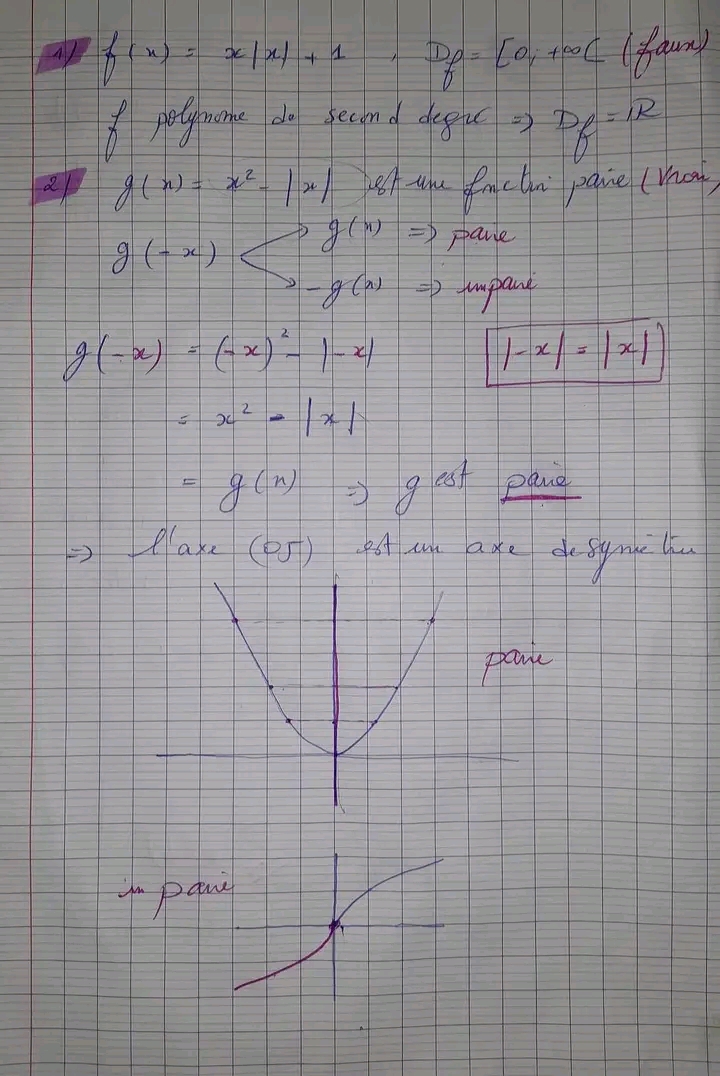 1) f(x) = x|x| + 1 , Df = [0; +∞[ (faux)
f polynome de second degré => Df = IR
2) g(x) = x² - |x| est une fonction paire (Vrai)
g(x) => paire
g(-x)
-g(x) => impaire
g(-x) = (-x)² - |-x| |-x| = |x|
= x² - |x|
= g(x) => g est paire
=> l'axe (OJ) est un axe de symétrie
paire
impaire